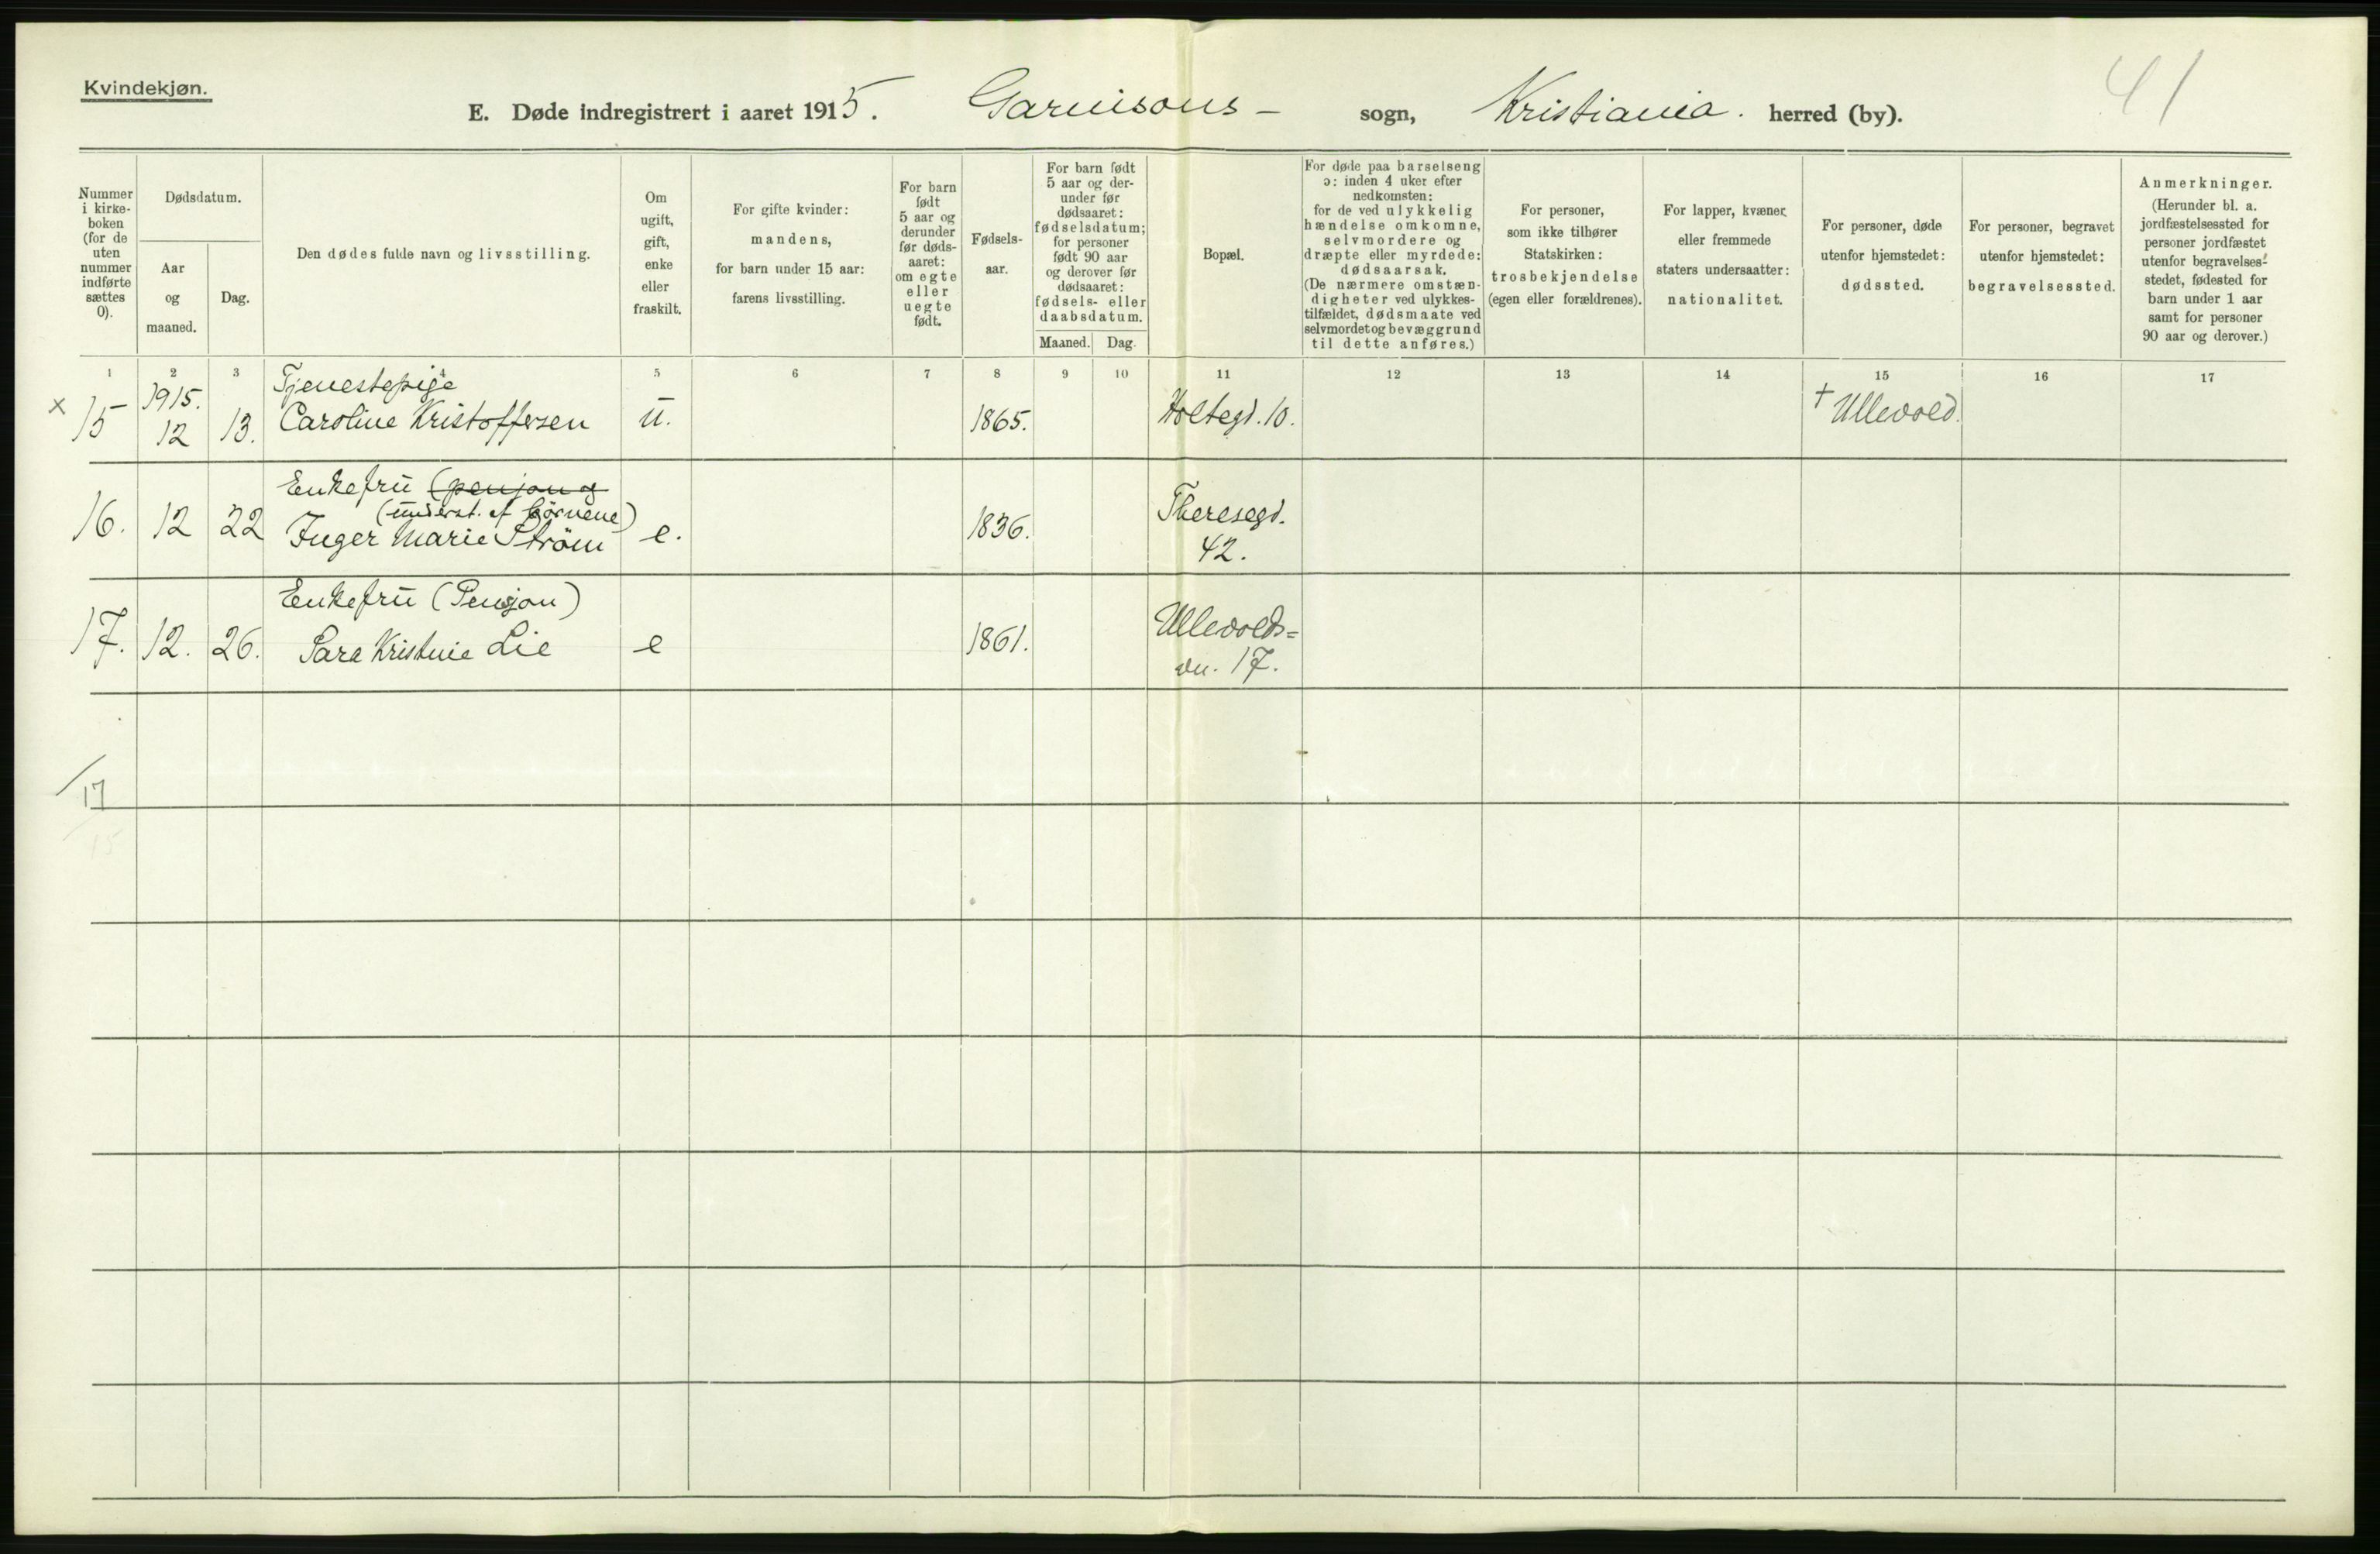 Kvindekjøn.
41
E. Døde indregistrert i aaret 1915. Garnisons- sogn, Kristiania. herred (by).
Nummer i kirke-boken (for de uten nummer indførte sættes 0).
Dødsdatum.
Aar og maaned.
Dag.
Den dødes fulde navn og livsstilling.
Om ugift, gift, enke eller fraskilt.
For gifte kvinder: mandens, for barn under 15 aar: farens livsstilling.
For barn født 5 aar og derunder før døds-aaret: om egte eller uegte født.
Fødsels-aar.
For barn født 5 aar og der-under før dødsaaret: fødselsdatum; for personer født 90 aar og derover før dødsaaret: fødsels- eller daabsdatum.
Maaned. Dag.
Bopæl.
For døde paa barselseng ɔ: inden 4 uker efter nedkomsten: for de ved ulykkelig hændelse omkomne, selvmordere og dræpte eller myrdede: dødsaarsak. (De nærmere omstæn-digheter ved ulykkes-tilfældet, dødsmaate ved selvmordet og bevæggrund til dette anføres.)
For personer, som ikke tilhører Statskirken: trosbekjendelse (egen eller forældrenes).
For lapper, kvæner eller fremmede staters undersaatter: nationalitet.
For personer, døde utenfor hjemstedet: dødssted.
For personer, begravet utenfor hjemstedet: begravelsessted.
Anmerkninger. (Herunder bl. a. jordfæstelsessted for personer jordfæstet utenfor begravelses-stedet, fødested for barn under 1 aar samt for personer 90 aar og derover.)
1 2 3 4 5 6 7 8 9 10 11 12 13 14 15 16 17
1915. Tjenestepige
x 15 12 13. Caroline Kristoffersen u. 1865. Holtegd. 10. † Ullevold.
Enkefru (pensjon og
(underst. af børnene)
16. 12 22 Inger Marie Strøm e. 1836. Theresegd. 42.
Enkefru (Pensjon)
17. 12. 26. Sara Kristine Lie e 1861. Ullevolds= vn. 17.
17
15